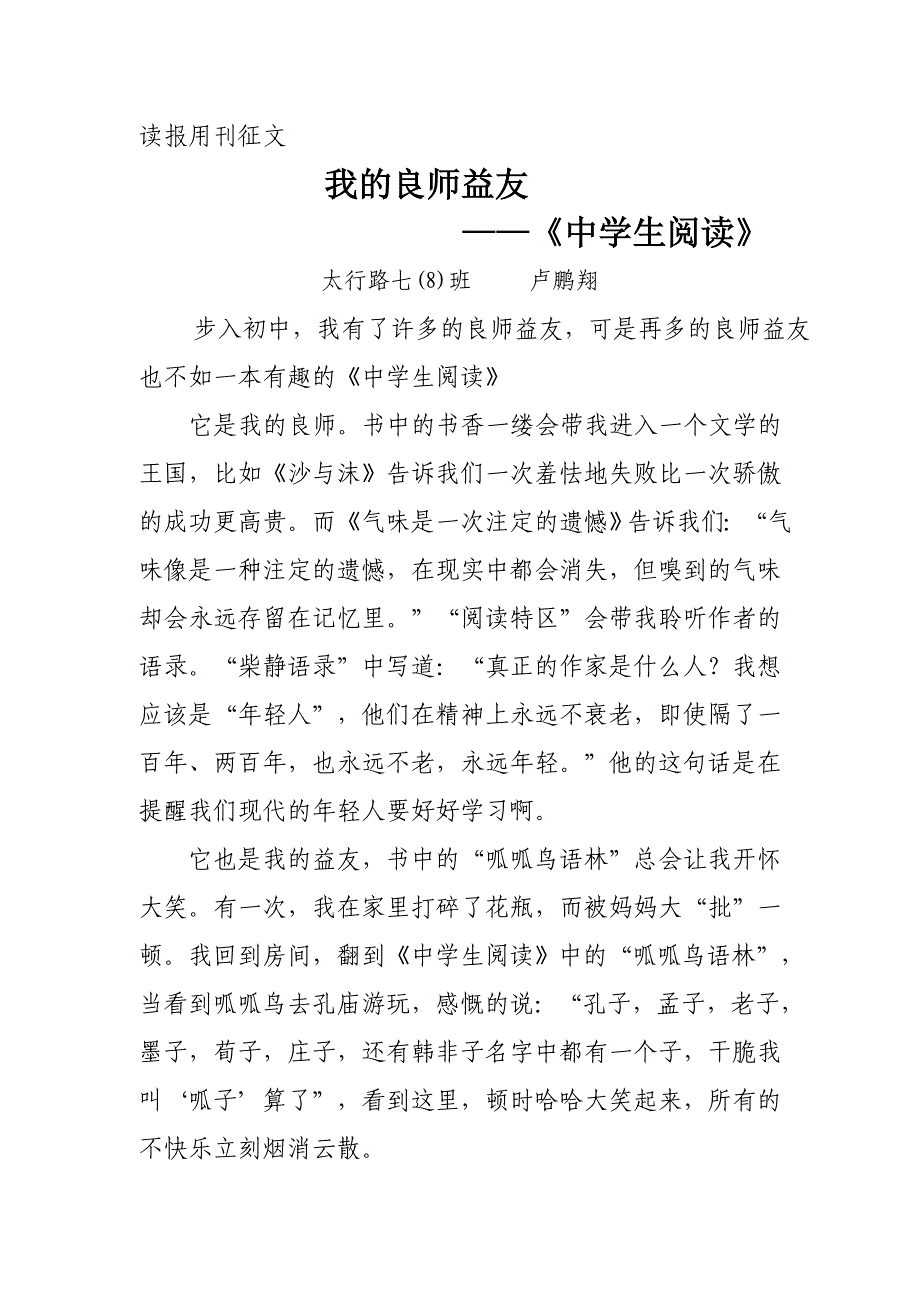 读报用刊征文
我的良师益友
——《中学生阅读》
太行路七(8)班 卢鹏翔
步入初中，我有了许多的良师益友，可是再多的良师益友
也不如一本有趣的《中学生阅读》
它是我的良师。书中的书香一缕会带我进入一个文学的
王国，比如《沙与沫》告诉我们一次羞怯地失败比一次骄傲
的成功更高贵。而《气味是一次注定的遗憾》告诉我们：“气
味像是一种注定的遗憾，在现实中都会消失，但嗅到的气味
却会永远存留在记忆里。”“阅读特区”会带我聆听作者的
语录。“柴静语录”中写道：“真正的作家是什么人？我想
应该是“年轻人”，他们在精神上永远不衰老，即使隔了一
百年、两百年，也永远不老，永远年轻。”他的这句话是在
提醒我们现代的年轻人要好好学习啊。
它也是我的益友，书中的“呱呱鸟语林”总会让我开怀
大笑。有一次，我在家里打碎了花瓶，而被妈妈大“批”一
顿。我回到房间，翻到《中学生阅读》中的“呱呱鸟语林”，
当看到呱呱鸟去孔庙游玩，感慨的说：“孔子，孟子，老子，
墨子，荀子，庄子，还有韩非子名字中都有一个子，干脆我
叫‘呱子’算了”，看到这里，顿时哈哈大笑起来，所有的
不快乐立刻烟消云散。